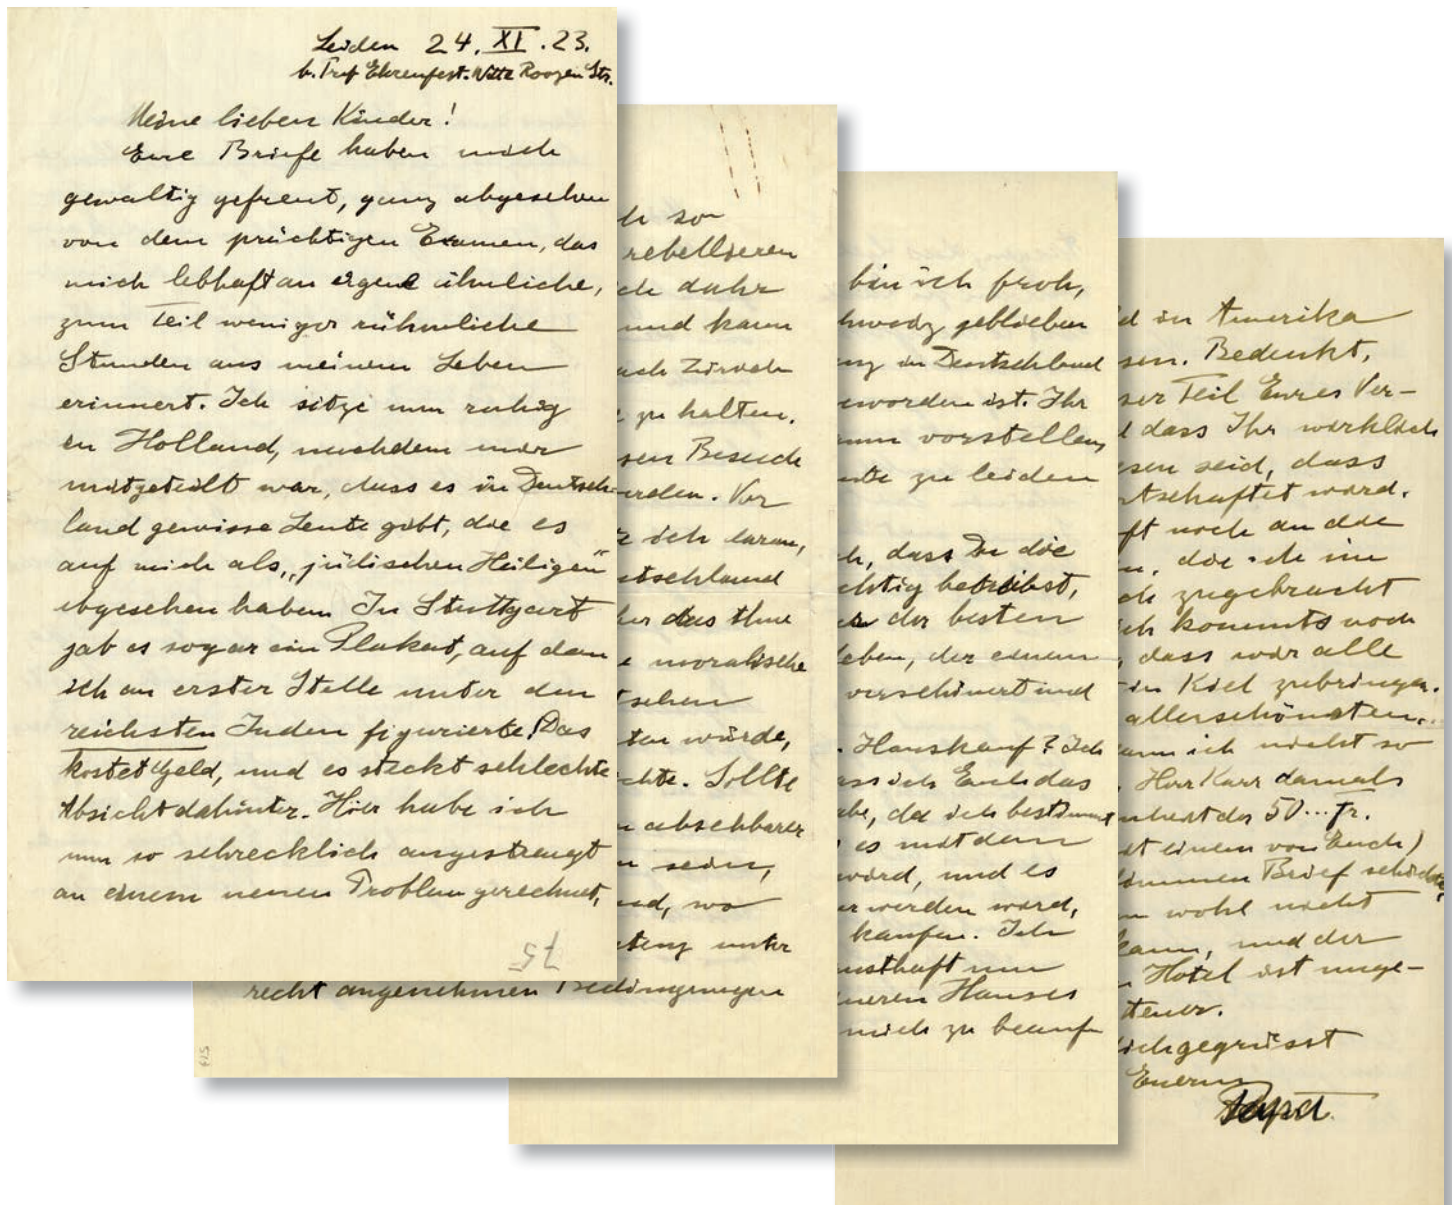 Leiden 24. XI. 23.
b. Prof Ehrenfest. Witte Roozen Str.
Meine lieben Kinder!
Eure Briefe haben mich
gewaltig gefreut, ganz abgesehen
von dem prächtigen Examen, das
mich lebhaft an eigene ähnliche,
zum Teil weniger rühmliche
Stunden aus meinem Leben
erinnert. Ich sitze nun ruhig
in Holland, nachdem mir
mitgeteilt war, dass es in Deutsch-
land gewisse Leute gibt, die es
auf mich als „jüdischen Heiligen"
abgesehen haben. In Stuttgart
gab es sogar ein Plakat, auf dem
ich an erster Stelle unter den
reichsten Juden figurierte. Das
kostet Geld, und es steckt schlechte
Absicht dahinter. Hier habe ich
nun so schrecklich angestrengt
an einem neuen Problem gerechnet,
75
so
rebellieren
und kann
Zürich
zu halten.
Besuch
Vor
ich daran,
das thue
moralische
würde,
Sollte
absehbarer
sein,
wo
unter
recht angenehmen Bedingungen
bin ich froh,
geblieben
in Deutschland
geworden ist. Ihr
vorstellen,
zu leiden
dass Du die
betreibst,
der besten
der einem
verschönert und
Hauskauf? Ich
Euch das
da ich bestimmt
es mit dem
wird, und es
werden wird,
kaufen. Ich
nun
Hauses
mich zu
in Amerika
Bedenkt,
Teil Eures Ver-
dass Ihr wirklich
seid, dass
wird.
noch an die
die ich im
zugebracht
kommts noch
dass wir alle
in Kiel zubringen.
allerschönsten.
ich nicht so
Herr Karr damals
der 50... Fr.
einem von Euch)
Brief schickte,
wohl nicht
und der
Hotel ist unge-
teuer.
gegrüsst
Euerm
Papa.